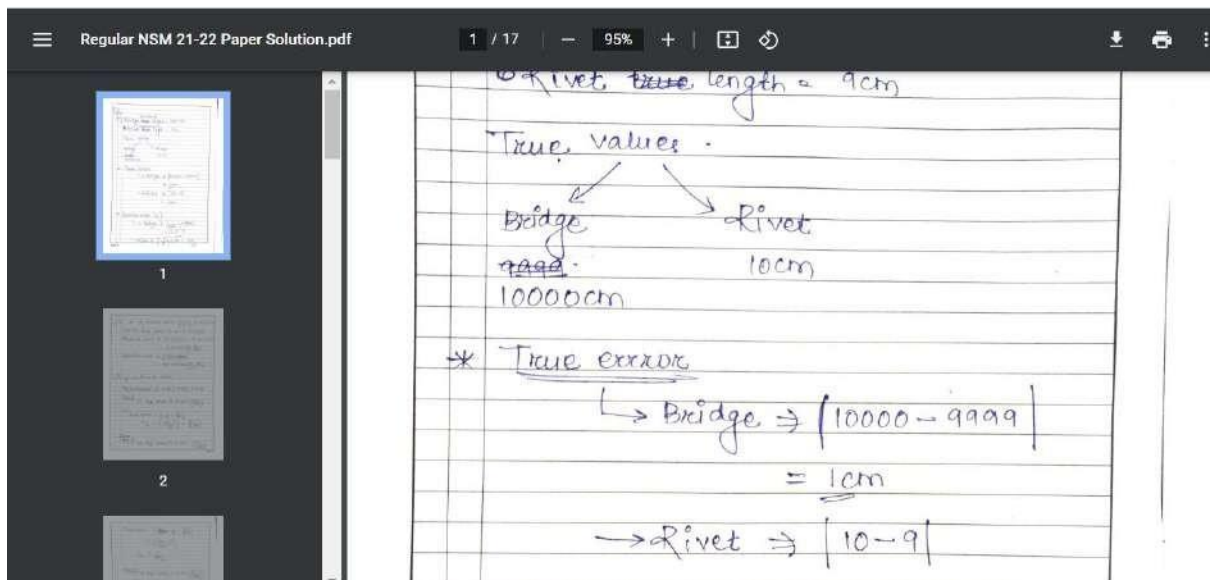 Regular NSM 21-22 Paper Solution.pdf
1 / 17
95%
Rivet true length = 9cm
True values.
Bridge Rivet
9999. 10cm
10000cm
* True errror
Bridge ⇒ |10000-9999|
= 1cm
→ Rivet ⇒ |10-9|
1
2